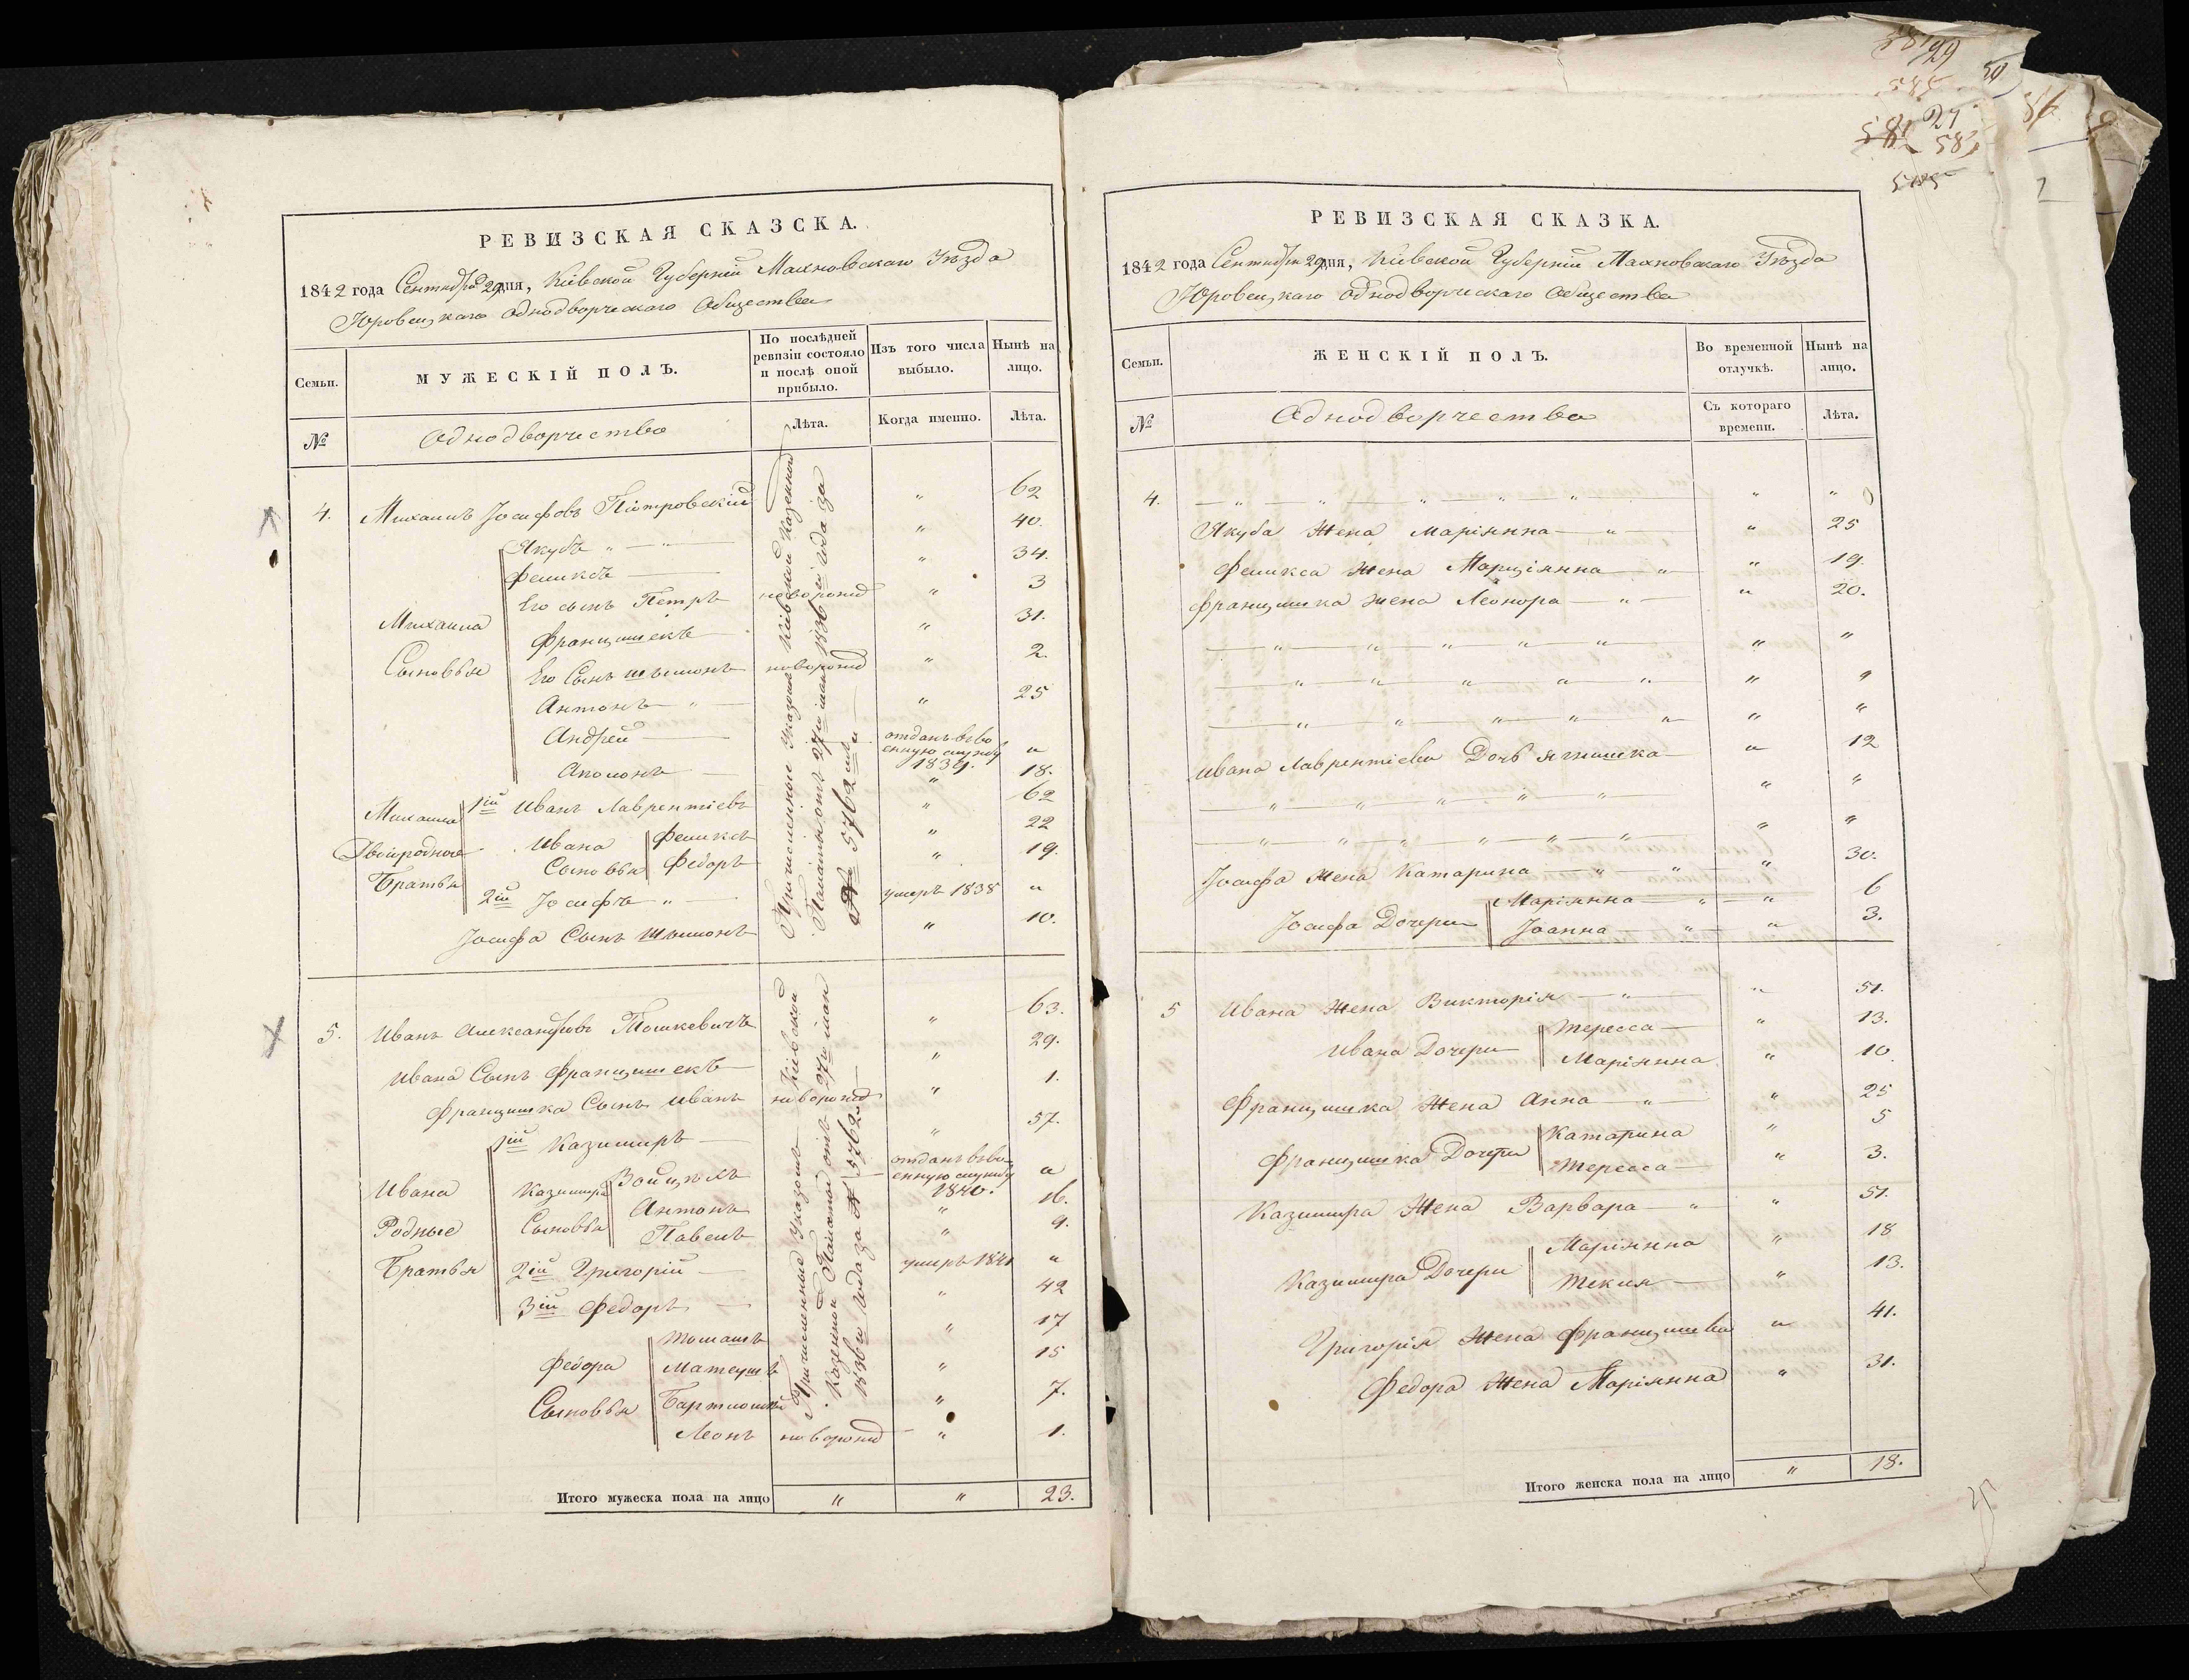 РЕВИЗСКАЯ СКАЗСКА.
1842 года Сентября 29 дня, Кіевской Губерніи Махновскаго Уѣзда
Юровецкаго однодворческаго Общества
Семьи.
МУЖЕСКІЙ ПОЛЪ.
По послѣдней ревизіи состояло и послѣ оной прибыло.
Изъ того числа выбыло.
Нынѣ на лицо.
№
Однодворчество
Лѣта.
Когда именно.
Лѣта.
4. Михаилъ Іосифовъ Піотровскій " 62
Якубъ " " 40.
Феликсъ " 34.
Его сынъ Петръ новорожд " 3
Михаила Францишекъ " 31.
Сыновья Его Сынъ Шымонъ новорожд " 2.
Антонъ " " 25
Андрей отданъ въ во
енную службу "
1839.
Аполонъ " 18.
Михаила 1ій Иванъ Лаврентіевъ " 62
Двоюродные Ивана Феликсъ " 22
Сыновья Федоръ " 19.
Братья 2ій Іосифъ " умеръ 1838 "
Іосифа Сынъ Шымонъ " 10.
Причисленные Указомъ Кіевской Казенной
Палаты отъ 27го мая 1836го года за
№ 5762мъ
5. Иванъ Александровъ Тошкевичъ " 63.
Ивана Сынъ Францишекъ " 29.
Францишка Сынъ Иванъ новорожд " 1.
1ій Казимиръ " 57.
Ивана Казимира Войцѣхъ отданъ въ во
енную службу "
1840.
Антонъ " 16.
Родные Сыновья Павелъ " 9.
Братья 2ій Григорій умеръ 1841 "
3ій Федоръ " 42
Томашъ " 17
Федора Матеушъ " 15
Сыновья Бартломей " 7.
Леонъ новорожд " 1.
Причисленные Указомъ Кіевской
Казенной Палаты отъ 27го мая
1836го года за № 5762мъ
Итого мужеска пола на лицо " " 23.
РЕВИЗСКАЯ СКАЗКА.
1842 года Сентября 29 дня, Кіевской Губерніи Махновскаго Уѣзда
Юровецкаго однодворческаго Общества
Семьи.
ЖЕНСКІЙ ПОЛЪ.
Во временной отлучкѣ.
Нынѣ на лицо.
№
Однодворчества
Съ котораго времени.
Лѣта.
4. " " " " " " "
Якуба Жена Маріянна " " 25
Феликса Жена Марціянна " " 19.
Францишка Жена Леонора " " 20.
" " " " " " "
" " " " " " "
" " " " " " "
Ивана Лаврентіева Дочь Ягнишка " 12
" " " " " " "
" " " " " " " "
Іосифа Жена Катарина " " " 30.
Іосифа Дочери Маріянна " " 6
Іоанна " " 3.
5 Ивана Жена Викторія " " 51.
Ивана Дочери Тересса " 13.
Маріянна " 10.
Францишка Жена Анна " " 25
Францишка Дочери Катарина " 5
Тересса " 3.
Казимира Жена Варвара " " 51.
Казимира Дочери Маріянна " 18
Текля " 13.
Григорія Жена Францишка " 41.
Федора Жена Маріянна " 31.
Итого женска пола на лицо " 18.